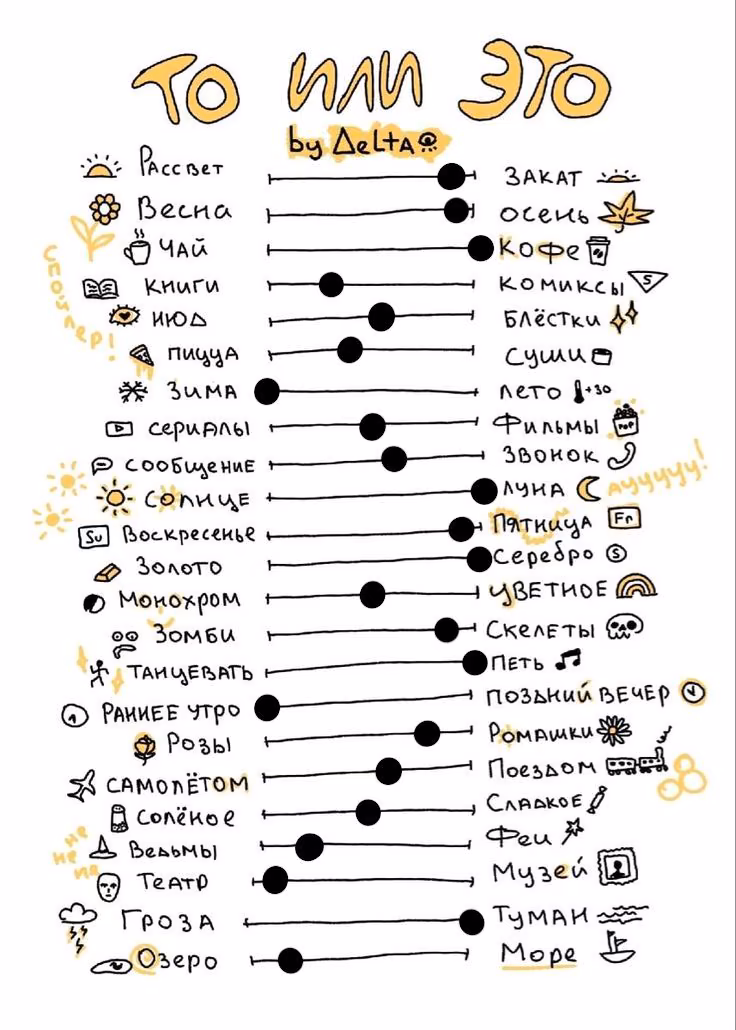 ТО ИЛИ ЭТО
by DeLtA
Рассвет ЗАКАТ
Весна осень
ЧАЙ Кофе
спойлер!
книги комиксы S
нюд блёстки
пицца суши
Зима лето +30
сериалы Фильмы POP
сообщение звонок
солнце луна ауууууу!
Su Воскресенье Пятница Fr
Золото Серебро S
Монохром цветное
Зомби Скелеты
танцевать Петь
Раннее утро поздний вечер
Розы Ромашки
самолётом Поездом
солёное Сладкое
не не па
Ведьмы Феи
Театр Музей
Гроза Туман
Озеро Море